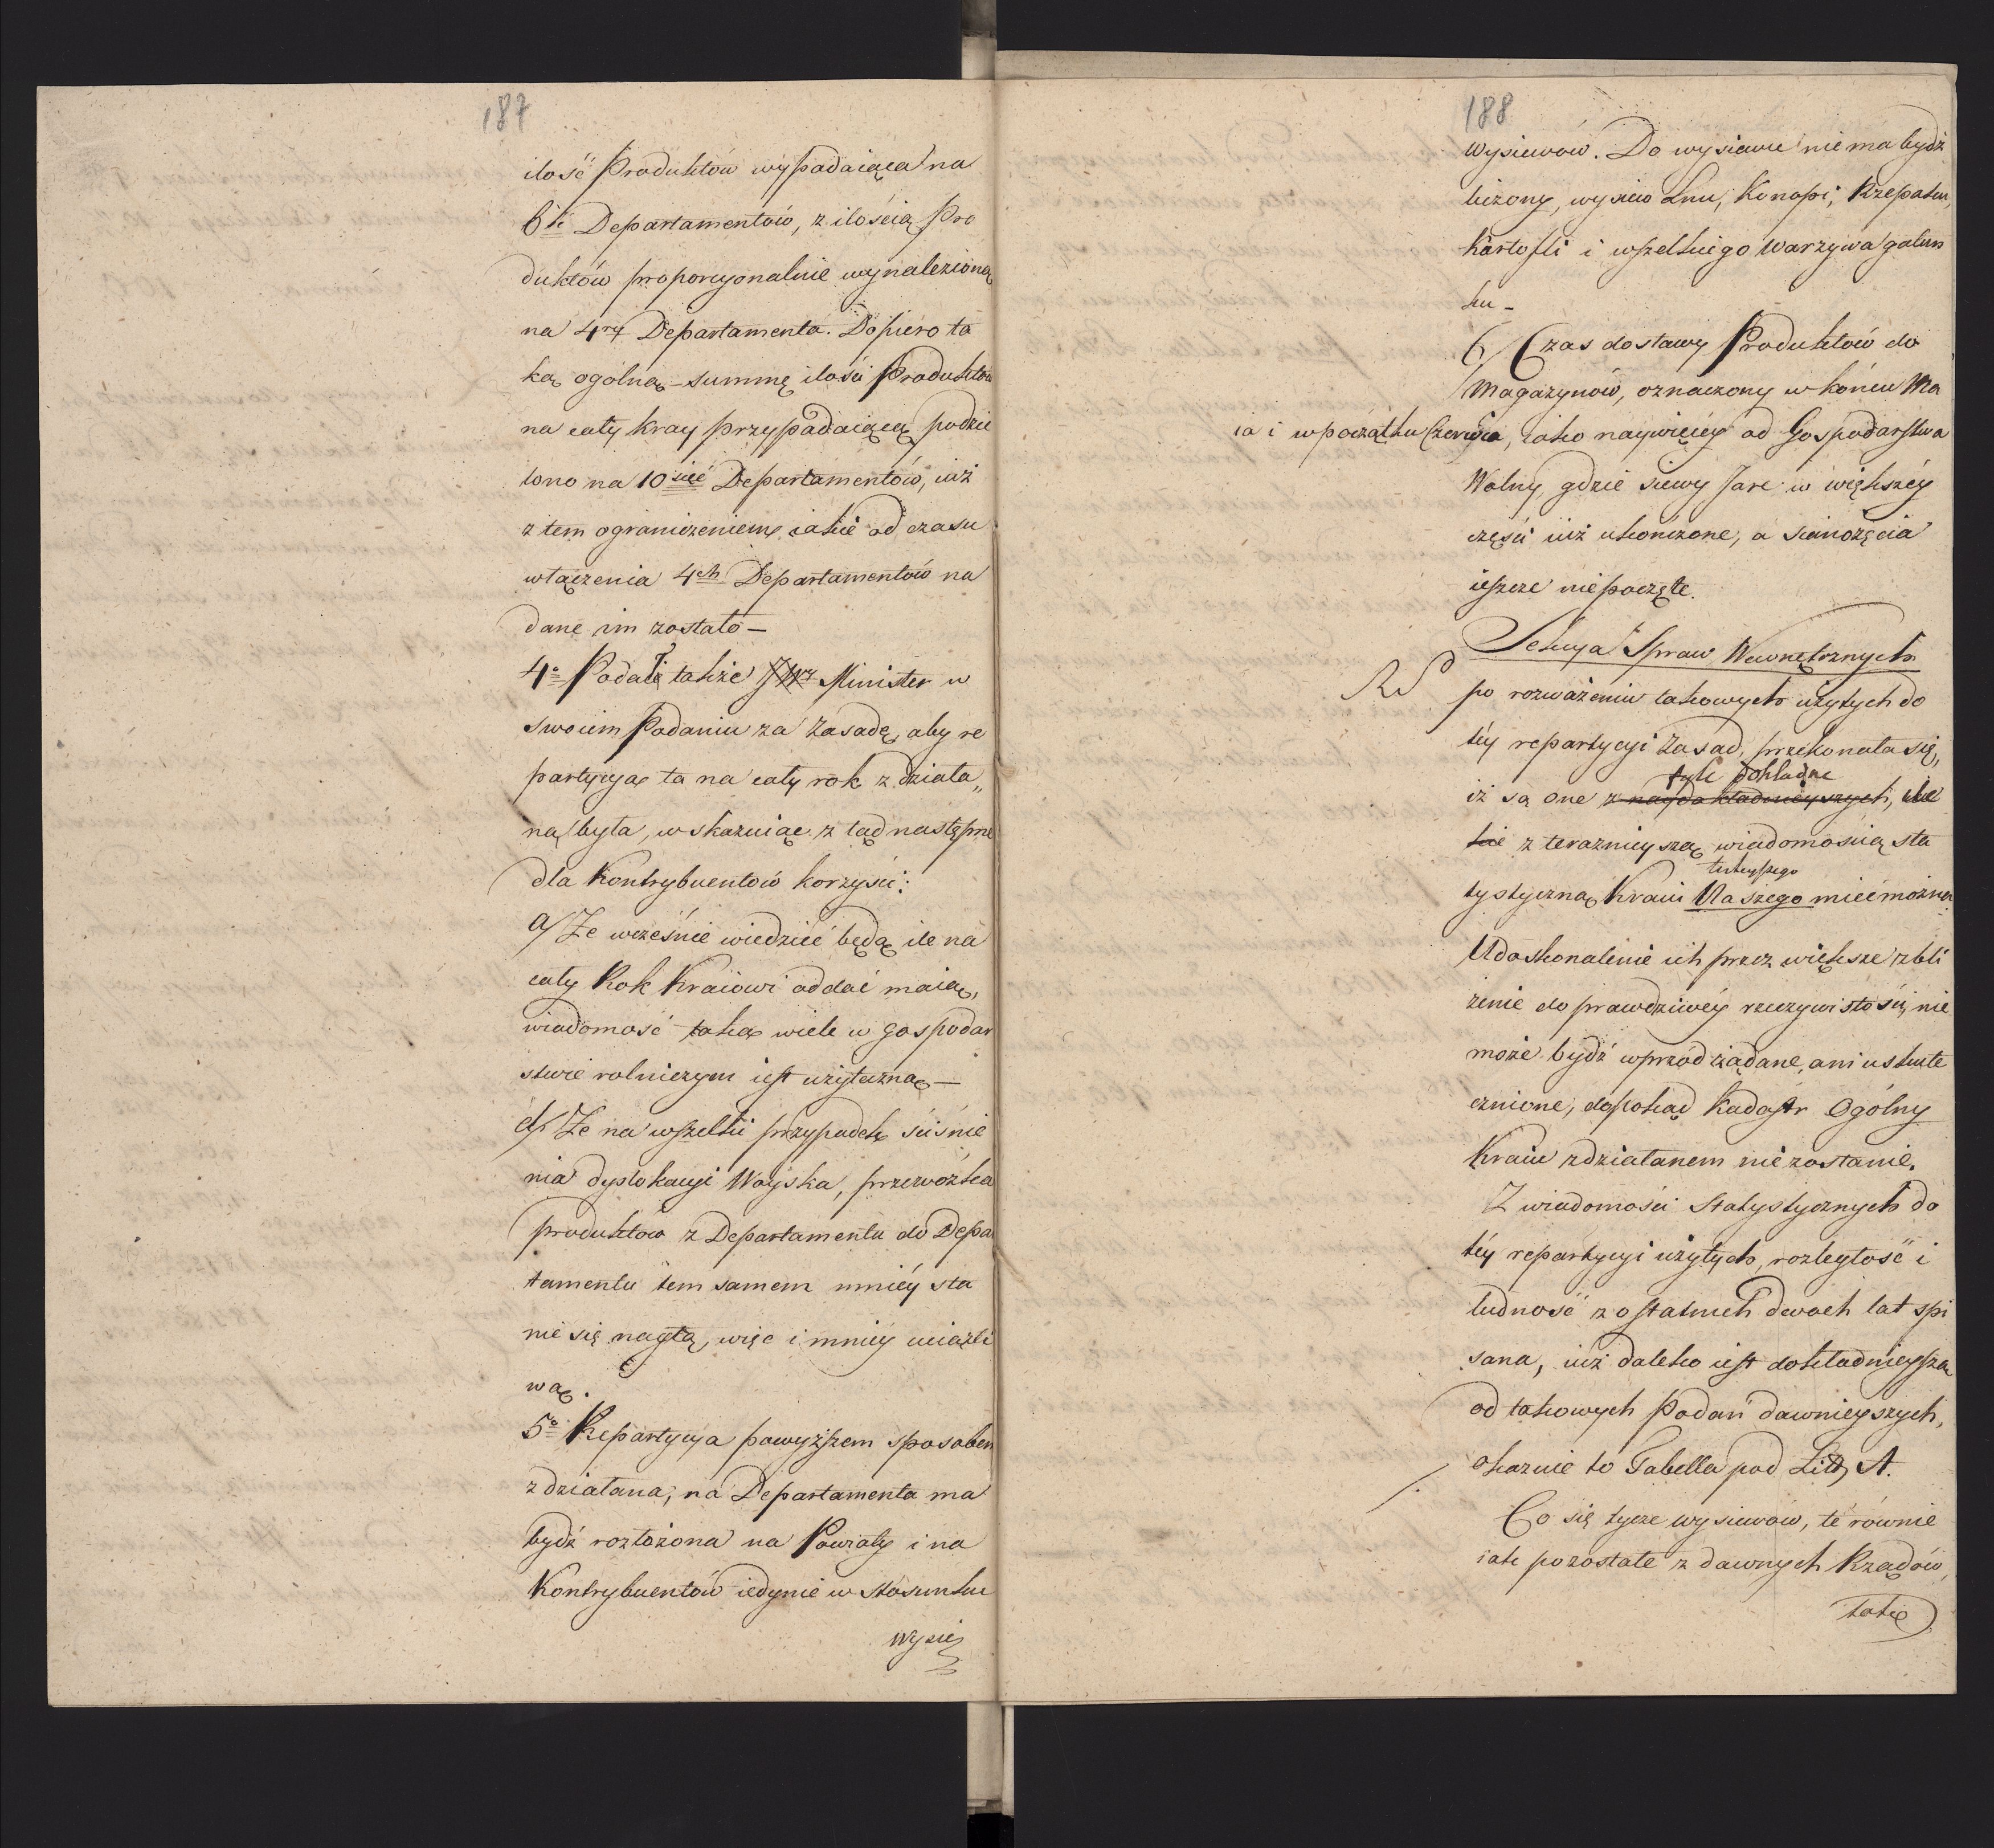 187
ilość Produktów wypadaiąca na
6ść Departamentów, z ilością Pro
duktów proporcyonalnie wynalezioną
na 4ry Departamenta. Dopiero ta
ką ogólną summę ilości Produktów
na cały kray przypadaiącą podzie
lono na 10sięć Departamentów, iuż
z tem ograniczeniem iakie od czasu
włączenia 4ch Departamentów na
dane im zostało —
4o Podał także JWz Minister w
swoiem Podaniu za zasadę, aby re
partycya ta na cały rok z działa„
ną była, wskazuiąc z tąd następne
dla Kontrybuentów korzyści:
a/ Ze wcześnie wiedzieć będą ile na
cały Rok Kraiowi oddać maią,
wiadomość taka wiele w gospodar
stwie rolniczym iest użyteczną —
b/ Ze na wszelki przypadek ściśnie
nia dyslokacyi Woyska, przewózka
produktów z Departamentu do Depar
tamentu tem samem mniéy sta
nie się nagłą, więc i mniéy uciążli
wą.
5o Repartycya powyższem sposobem
zdziałana, na Departamenta ma
bydź rozłożona na Powiaty i na
Kontrybuentów iedynie w stosunku
wysie
188
Wysiewów. Do wysiewu nie ma bydź
liczony, wysiew Lnu, Konopi, Rzepaku,
Kartofli i wszelkiego warzywa gatun
ku –
6/ Czas dostawy Produktów do
Magazynów, oznaczony w końcu Ma
ia i w początku Czerwca, iako naywięcéy od Gospodarstwa
Wolny, gdzie siewy Jare w większéy
części iuż ukończone, a sianożęcia
ieszcze nie poczęte.
Sekcya Spraw Wewnętrznych
po rozważeniu takowych użytych do
téy repartycyi Zasad, przekonała się,
tyle dokładne
iż są one z naydokładnieyszych, ile
kie z teraznieyszą wiadomością sta
tuteyszego
tystyczną Kraiu Naszego mieć można
Udoskonalenie ich przez większe zbli
żenie do prawdziwéy rzeczywistości, nie
może bydź wprzód żądane, ani uskute
cznione, dopokąd Kadastr Ogólny
Kraiu zdziałanem nie zostanie.
Z wiadomości Statystycznych do
téy repartycyi użytych, rozległość i
ludność z ostatnich dwóch lat spi
sana, iuż daleko iest dokładnieysza
od takowych Podań dawnieyszych,
okazuie to Tabella pod Litt. A.
Co się tycze wysiewów, te równie
iak pozostałe z dawnych Rządów
takie